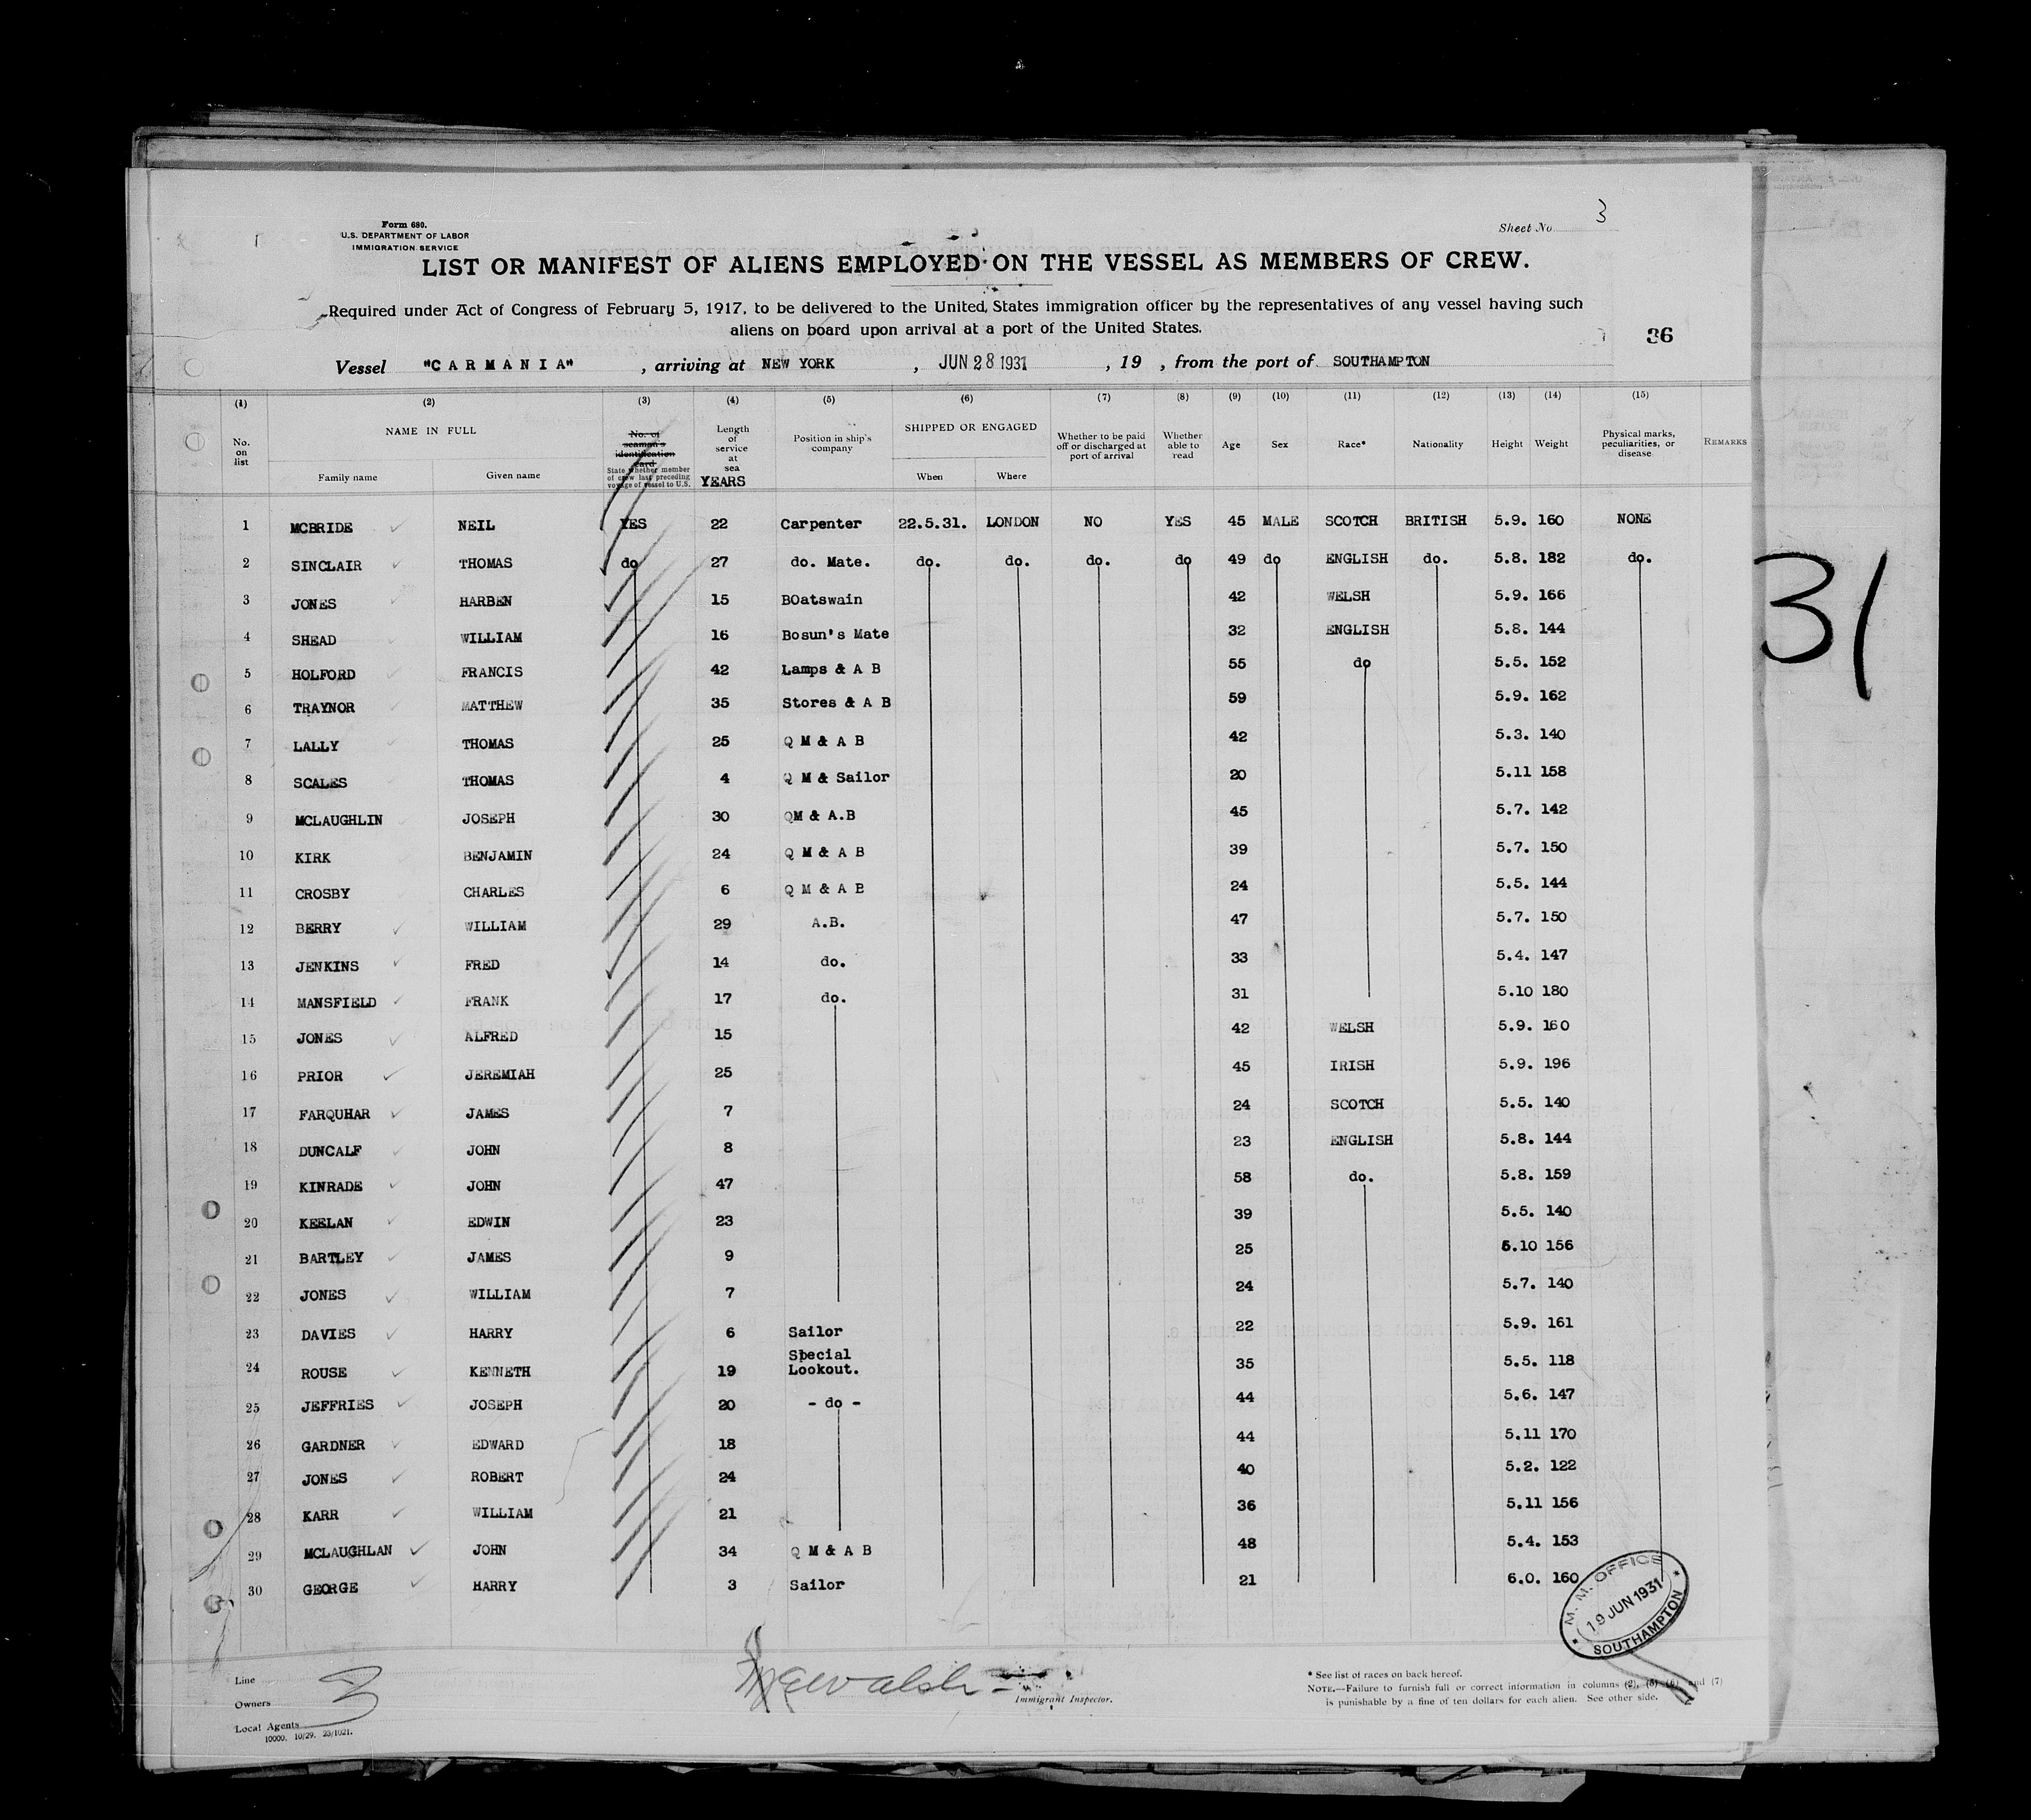 Form 680.
U.S. DEPARTMENT OF LABOR
IMMIGRATION SERVICE
Sheet No. 3
LIST OR MANIFEST OF ALIENS EMPLOYED ON THE VESSEL AS MEMBERS OF CREW.
Required under Act of Congress of February 5, 1917, to be delivered to the United States immigration officer by the representatives of any vessel having such
aliens on board upon arrival at a port of the United States.
36
Vessel "CARMANIA", arriving at NEW YORK, JUN 28 1931, 19 , from the port of SOUTHAMPTON
(1) (2) (3) (4) (5) (6) (7) (8) (9) (10) (11) (12) (13) (14) (15)
No. on list
NAME IN FULL
Family name Given name
No. of seaman's identification card
State whether member of crew last preceding voyage of vessel to U.S.
Length of service at sea
YEARS
Position in ship's company
SHIPPED OR ENGAGED
When Where
Whether to be paid off or discharged at port of arrival
Whether able to read
Age Sex Race* Nationality Height Weight
Physical marks, peculiarities, or disease
REMARKS
1 MCBRIDE NEIL YES 22 Carpenter 22.5.31. LONDON NO YES 45 MALE SCOTCH BRITISH 5.9. 160 NONE
2 SINCLAIR THOMAS do 27 do. Mate. do. do. do. do 49 do ENGLISH do. 5.8. 182 do.
3 JONES HARBEN 15 BOatswain 42 WELSH 5.9. 166
4 SHEAD WILLIAM 16 Bosun's Mate 32 ENGLISH 5.8. 144
5 HOLFORD FRANCIS 42 Lamps & A B 55 do 5.5. 152
6 TRAYNOR MATTHEW 35 Stores & A B 59 5.9. 162
7 LALLY THOMAS 25 Q M & A B 42 5.3. 140
8 SCALES THOMAS 4 Q M & Sailor 20 5.11 158
9 MCLAUGHLIN JOSEPH 30 QM & A.B 45 5.7. 142
10 KIRK BENJAMIN 24 Q M & A B 39 5.7. 150
11 CROSBY CHARLES 6 Q M & A B 24 5.5. 144
12 BERRY WILLIAM 29 A.B. 47 5.7. 150
13 JENKINS FRED 14 do. 33 5.4. 147
14 MANSFIELD FRANK 17 do. 31 5.10 180
15 JONES ALFRED 15 42 WELSH 5.9. 160
16 PRIOR JEREMIAH 25 45 IRISH 5.9. 196
17 FARQUHAR JAMES 7 24 SCOTCH 5.5. 140
18 DUNCALF JOHN 8 23 ENGLISH 5.8. 144
19 KINRADE JOHN 47 58 do. 5.8. 159
20 KEELAN EDWIN 23 39 5.5. 140
21 BARTLEY JAMES 9 25 5.10 156
22 JONES WILLIAM 7 24 5.7. 140
23 DAVIES HARRY 6 Sailor 22 5.9. 161
24 ROUSE KENNETH 19 Special Lookout. 35 5.5. 118
25 JEFFRIES JOSEPH 20 - do - 44 5.6. 147
26 GARDNER EDWARD 18 44 5.11 170
27 JONES ROBERT 24 40 5.2. 122
28 KARR WILLIAM 21 36 5.11 156
29 MCLAUGHLAN JOHN 34 Q M & A B 48 5.4. 153
30 GEORGE HARRY 3 Sailor 21 6.0. 160
31
M. M. OFFICE
19 JUN 1931
SOUTHAMPTON
Line
Owners
Local Agents
3
10000. 10/29. 23/1021.
Immigrant Inspector.
* See list of races on back hereof.
NOTE.—Failure to furnish full or correct information in columns (2), (5) (6) and (7)
is punishable by a fine of ten dollars for each alien. See other side.